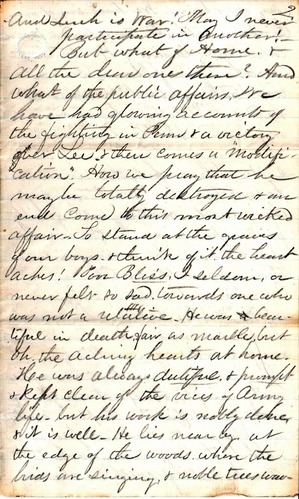 And such is War! May I never
participate in Another!
But what of Home. &
all the dear ones there? And
what of the public affairs. We
have had glowing accounts of
the fighting in Penn & a victory
over Lee, & then comes a "Modifi-
cation". How we pray that he
may be totally destroyed & an
end come to this most wicked
affair. To stand at the graves
of our boys. & think of it. the heart
aches! Poor Bliss, I seldom, or
never felt so sad, towards one who
was not a relative. He was beau-
tiful in death, fair as marble, but
oh, the aching hearts at home.
He was always dutiful, & prompt
& kept clean of the vices of Army
life. but his work is nobly done,
& it is well. He lies near by, at
the edge of the woods, where the
birds are singing, & noble trees wav-